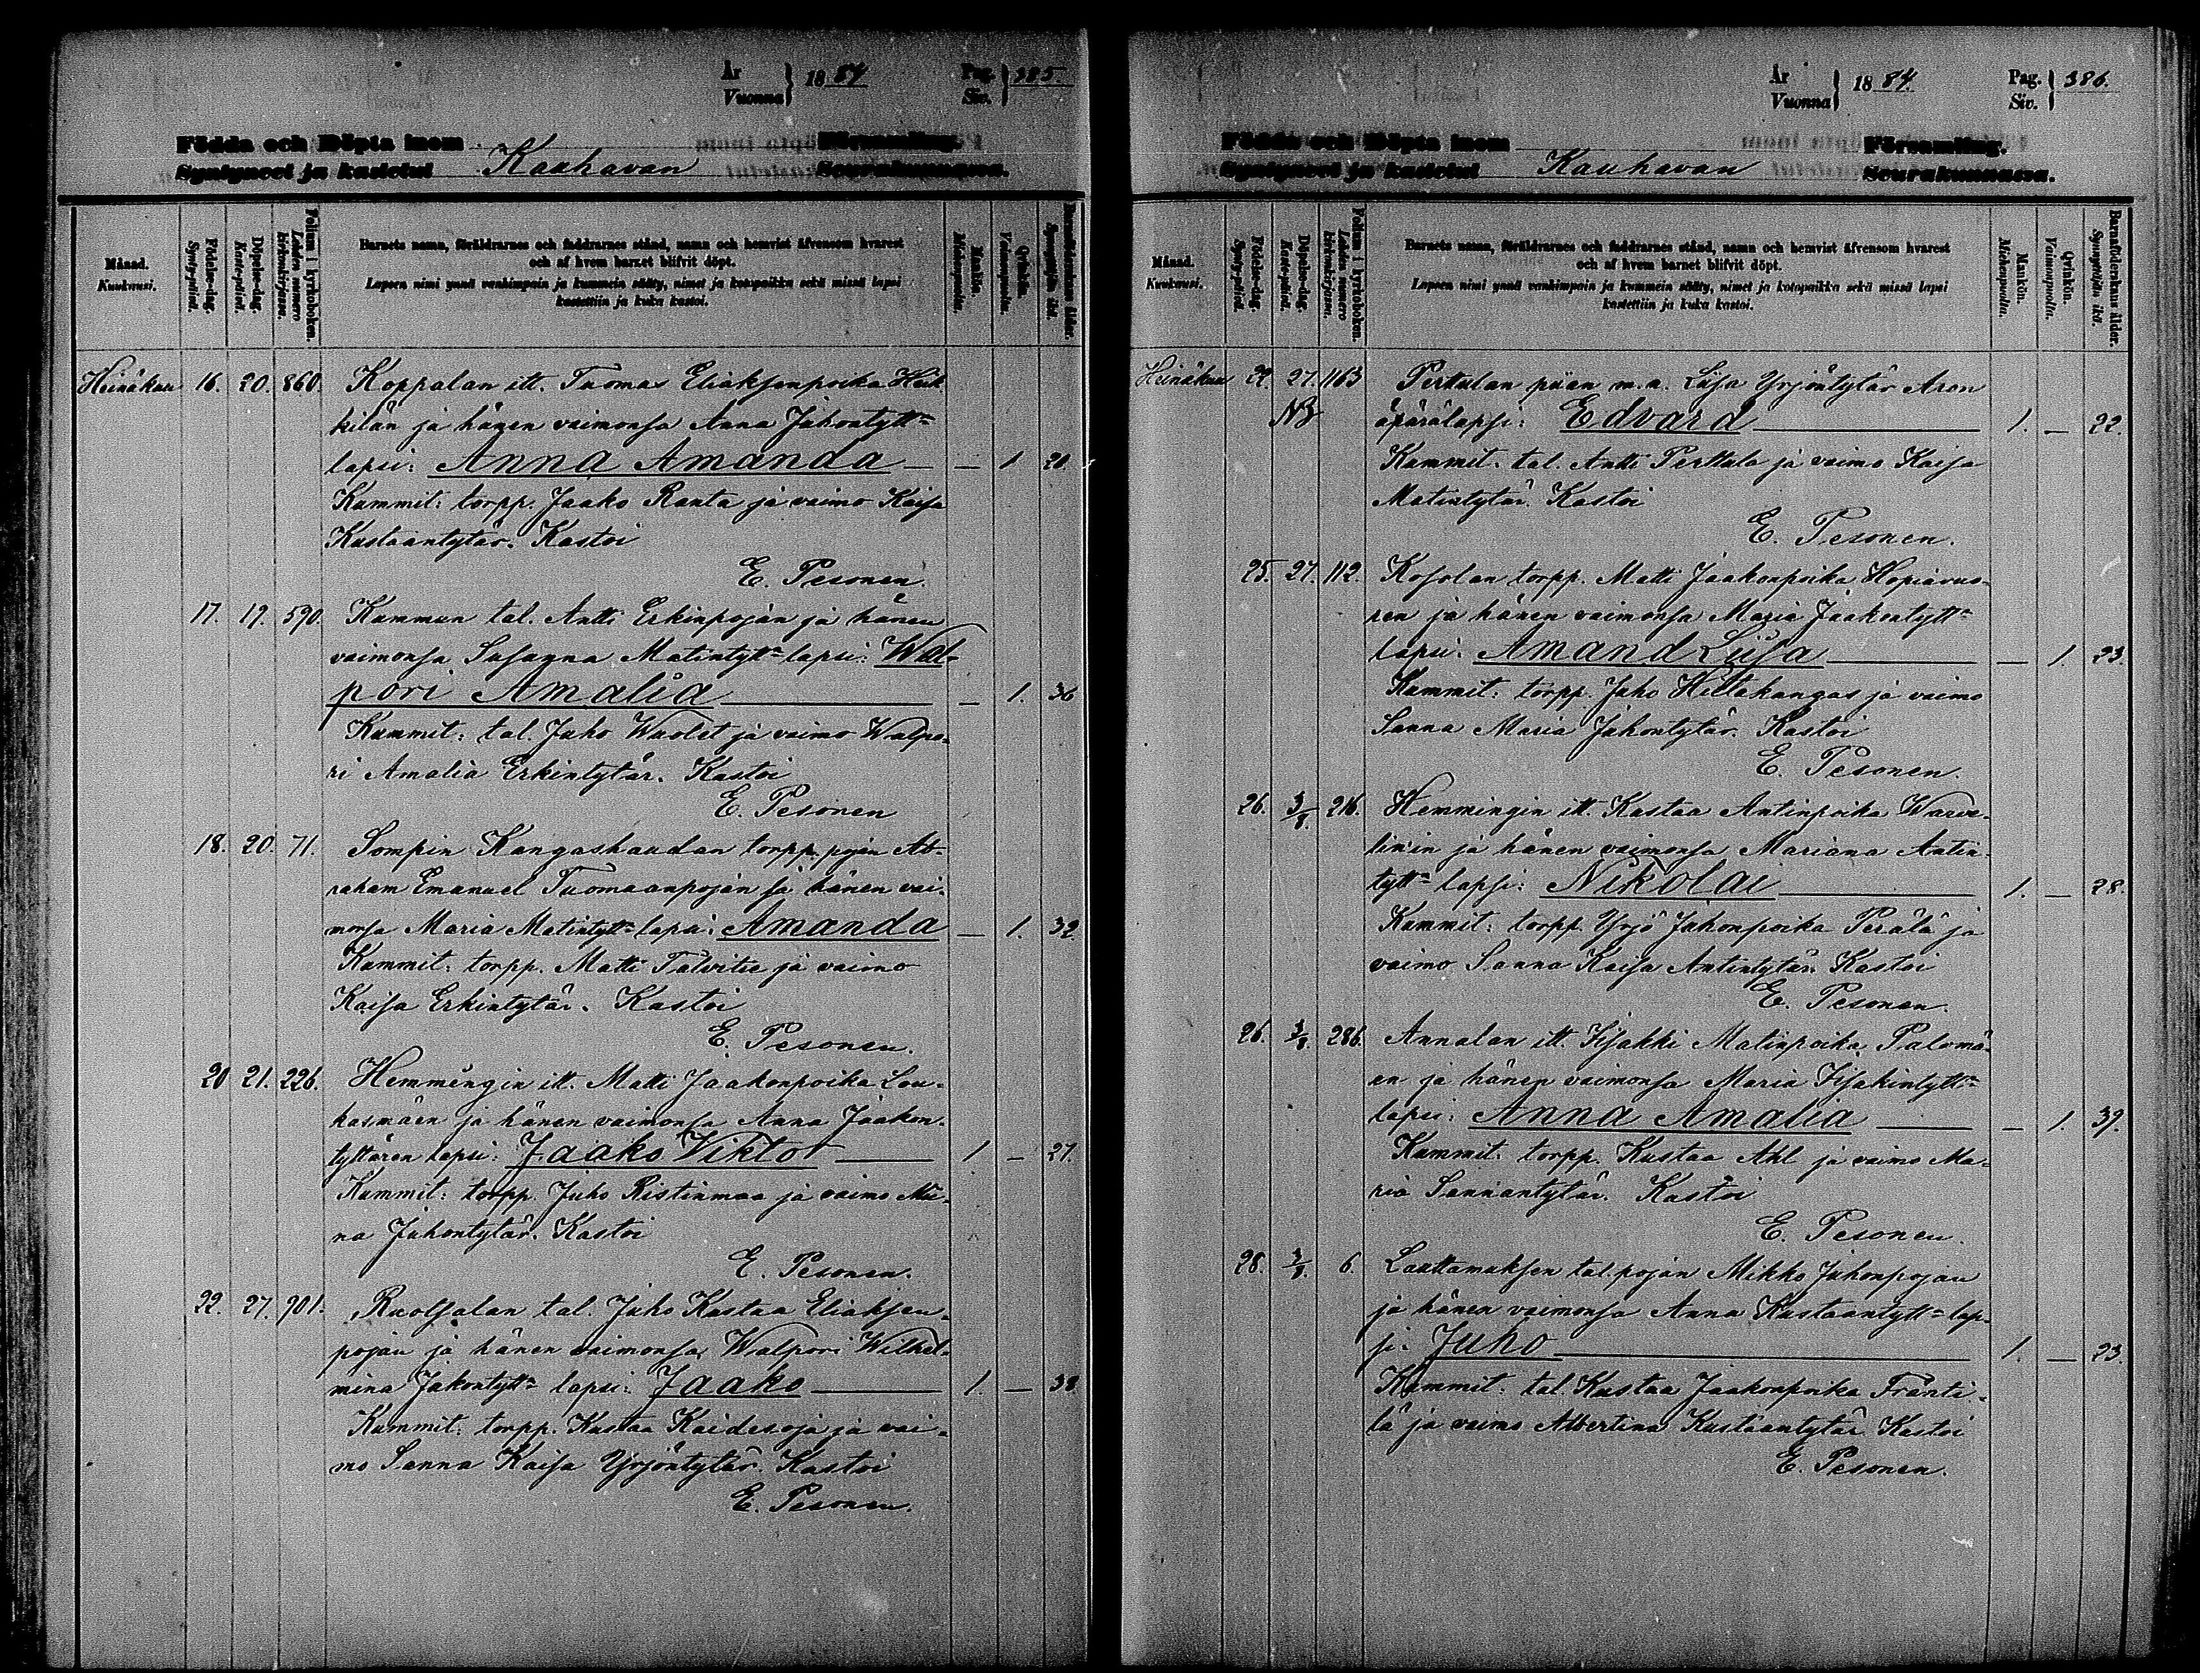 År
Vuonna 1884 Pag. Siv. 385.
Födda och Döpta inom Församling.
Syntyneet ja kastetut Kauhavan Seurakunnassa.
Månad. Kuukausi.
Födelse-dag. Synty-päivä.
Döpelse-dag. Kaste-päivä.
Folium i kyrkoboken. Lehden numero kirkonkirjassa.
Barnets namn, föräldrarnes och faddrarnes stånd, namn och hemvist äfvensom hvarest
och af hvem barnet blifvit döpt.
Lapsen nimi ynnä vanhimpain ja kummein sääty, nimet ja kotopaikka sekä missä lapsi
kastettiin ja kuka kastoi.
Mankön. Miehenpuolia.
Qvinkön. Vaimonpuolia.
Barnaföderskans ålder. Synnyttäjän ikä.
Heinäkuu 16. 20. 860. Koppalan itt. Tuomas Eliaksenpoika Heik-
kilän ja hänen vaimonsa Anna Juhontytt:n
lapsi: Anna Amanda — — 1 20.
Kummit: torpp. Jaako Ranta ja vaimo Kaisa
Kustaantytär. Kastoi
E. Pesonen.
17. 19. 590. Kummun tal. Antti Erkinpojan ja hänen
vaimonsa Susanna Matintytt:n lapsi: Wal-
pori Amalia — — 1. 36
Kummit: tal. Juho Wuolet ja vaimo Walpo-
ri Amalia Erkintytär. Kastoi
E. Pesonen
18. 20. 71. Sompin Kangashaudan torpp. pojan Ab-
raham Emanuel Tuomaanpojan ja hänen vai-
monsa Maria Matintytt:n lapsi: Amanda — 1. 32
Kummit: torpp. Matti Talvitie ja vaimo
Kaisa Erkintytär. Kastoi
E. Pesonen.
20 21. 226. Hemmingin itt. Matti Jaakonpoika Lou-
kasmäen ja hänen vaimonsa Anna Jaakon-
tyttären lapsi: Jaako Viktor — 1 — 27.
Kummit: torpp. Juho Ristinmaa ja vaimo Mii-
na Juhontytär. Kastoi
E. Pesonen.
22. 27. 901. Ruotsalan tal. Juho Kustaa Eliaksen-
pojan ja hänen vaimonsa Walpori Wilhel-
mina Jakontytt:n lapsi: Jaako — 1. — 38
Kummit: torpp. Kustaa Kaidesoja ja vai-
mo Sanna Kaisa Yrjöntytär. Kastoi
E. Pesonen.
År
Vuonna 1884. Pag. Siv. 386.
Födda och Döpta inom Församling.
Syntyneet ja kastetut Kauhavan Seurakunnassa.
Månad. Kuukausi.
Födelse-dag. Synty-päivä.
Döpelse-dag. Kaste-päivä.
Folium i kyrkoboken. Lehden numero kirkonkirjassa.
Barnets namn, föräldrarnes och faddrarnes stånd, namn och hemvist äfvensom hvarest
och af hvem barnet blifvit döpt.
Lapsen nimi ynnä vanhimpain ja kummein sääty, nimet ja kotopaikka sekä missä lapsi
kastettiin ja kuka kastoi.
Mankön. Miehenpuolia.
Qvinkön. Vaimonpuolia.
Barnaföderskans ålder. Synnyttäjän ikä.
Heinäkuu 22. 27. 1163 Perttulan piian m.a. Liisa Yrjöntytär Aron
NB äpärälapsi: Edvard — 1. — 22.
Kummit. tal. Antti Perttula ja vaimo Kaisa
Matintytär. Kastoi
E. Pesonen.
25. 27. 112. Kosolan torpp. Matti Jaakonpoika Hopiavuo-
ren ja hänen vaimonsa Maria Jaakontytt:n
lapsi: Amand Liisa — — 1. 23.
Kummit: torpp. Juho Hietakangas ja vaimo
Sanna Maria Juhontytär. Kastoi
E. Pesonen.
26. 3/8. 216. Hemmingin itt. Kustaa Antinpoika Warve-
linin ja hänen vaimonsa Mariana Antin-
tytt:n lapsi: Nikolai — 1. — 28.
Kummit: torpp. Yrjö Juhonpoika Perälä ja
vaimo Sanna Kaisa Antintytär. Kastoi
E. Pesonen.
26. 3/8. 286. Annalan itt. Iisakki Matinpoika Palomä-
en ja hänen vaimonsa Maria Iisakintytt:n
lapsi: Anna Amalia — — 1. 39.
Kummit: torpp. Kustaa Ahl ja vaimo Ma-
ria Sannantytär. Kastoi
E. Pesonen.
28. 3/8. 6. Lauttamuksen tal.pojan Mikko Juhonpojan
ja hänen vaimonsa Anna Kustaantytt:n lap-
si: Juho — 1. — 23.
Kummit: tal. Kustaa Jaakonpoika Fränti-
lä ja vaimo Albertina Kustaantytär. Kastoi
E. Pesonen.